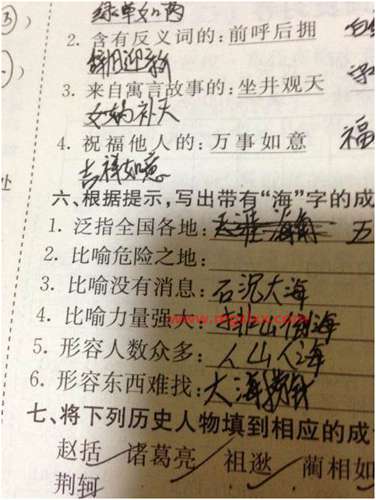 绿草如
2. 含有反义词的：前呼后拥
辞旧迎新
3. 来自寓言故事的：坐井观天
女娲补天
4. 祝福他人的：万事如意 福
吉祥如意
六、根据提示，写出带有“海”字的成
1. 泛指全国各地：天涯海角 五
2. 比喻危险之地：
3. 比喻没有消息：石沉大海
4. 比喻力量强大：排山倒海
5. 形容人数众多：人山人海
6. 形容东西难找：大海捞针
七、将下列历史人物填到相应的成
赵括 诸葛亮 祖逖 蔺相如
荆轲